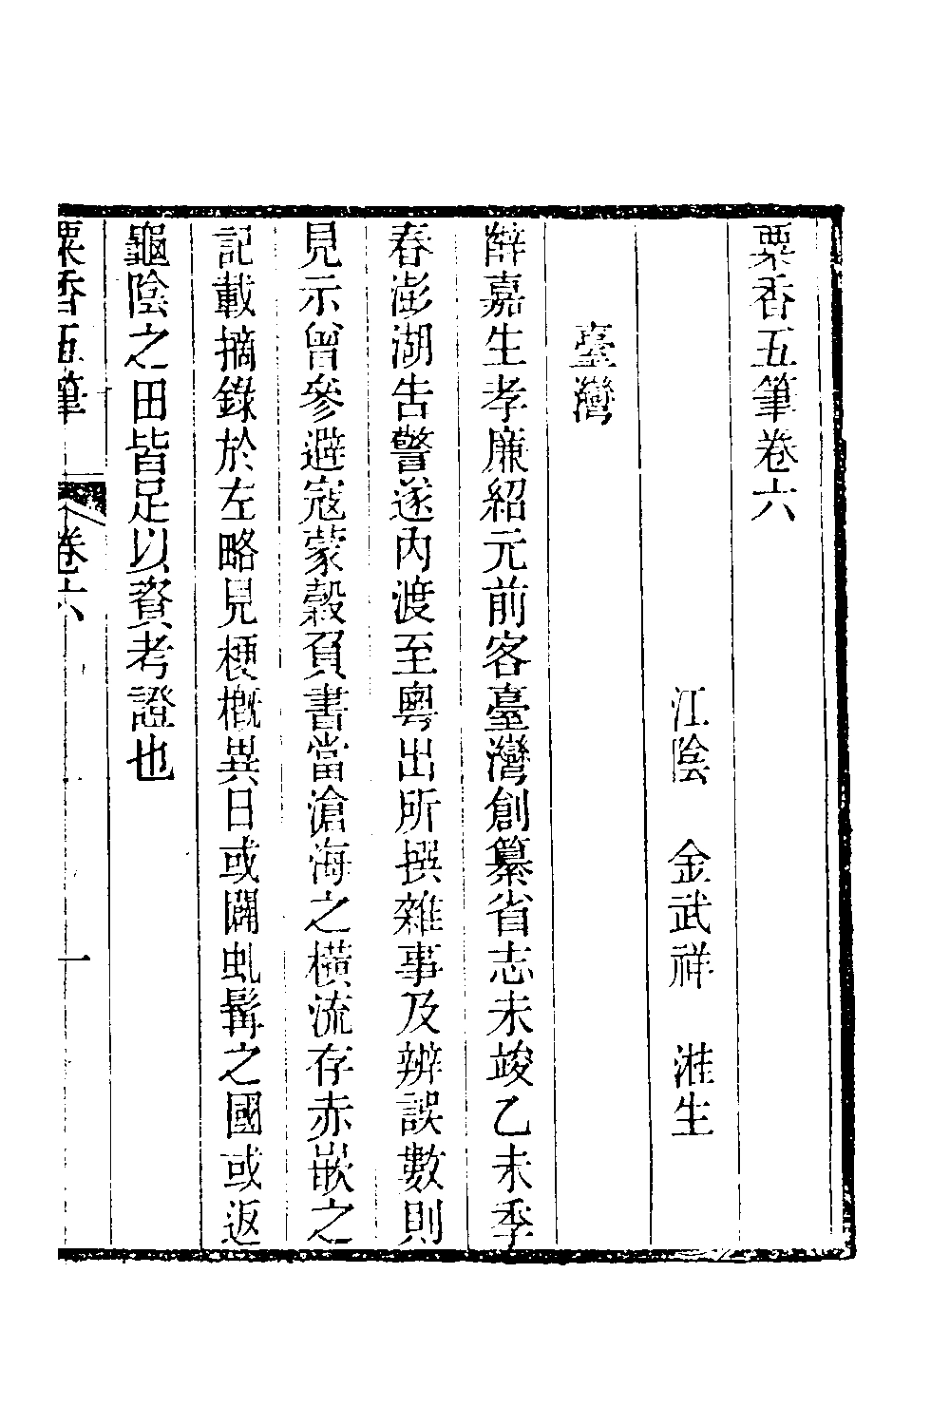 粟香五筆卷六
江陰　金武祥　溎生
臺灣
薛嘉生孝廉紹元前客臺灣創纂省志未竣乙未季
春澎湖告警遂內渡至粵出所撰雜事及辨誤數則
見示曾參避寇蒙穀負書當滄海之橫流存赤嵌之
記載摘錄於左略見梗概異日或闢虬髯之國或返
龜陰之田皆足以資考證也
粟香五筆　卷六　一